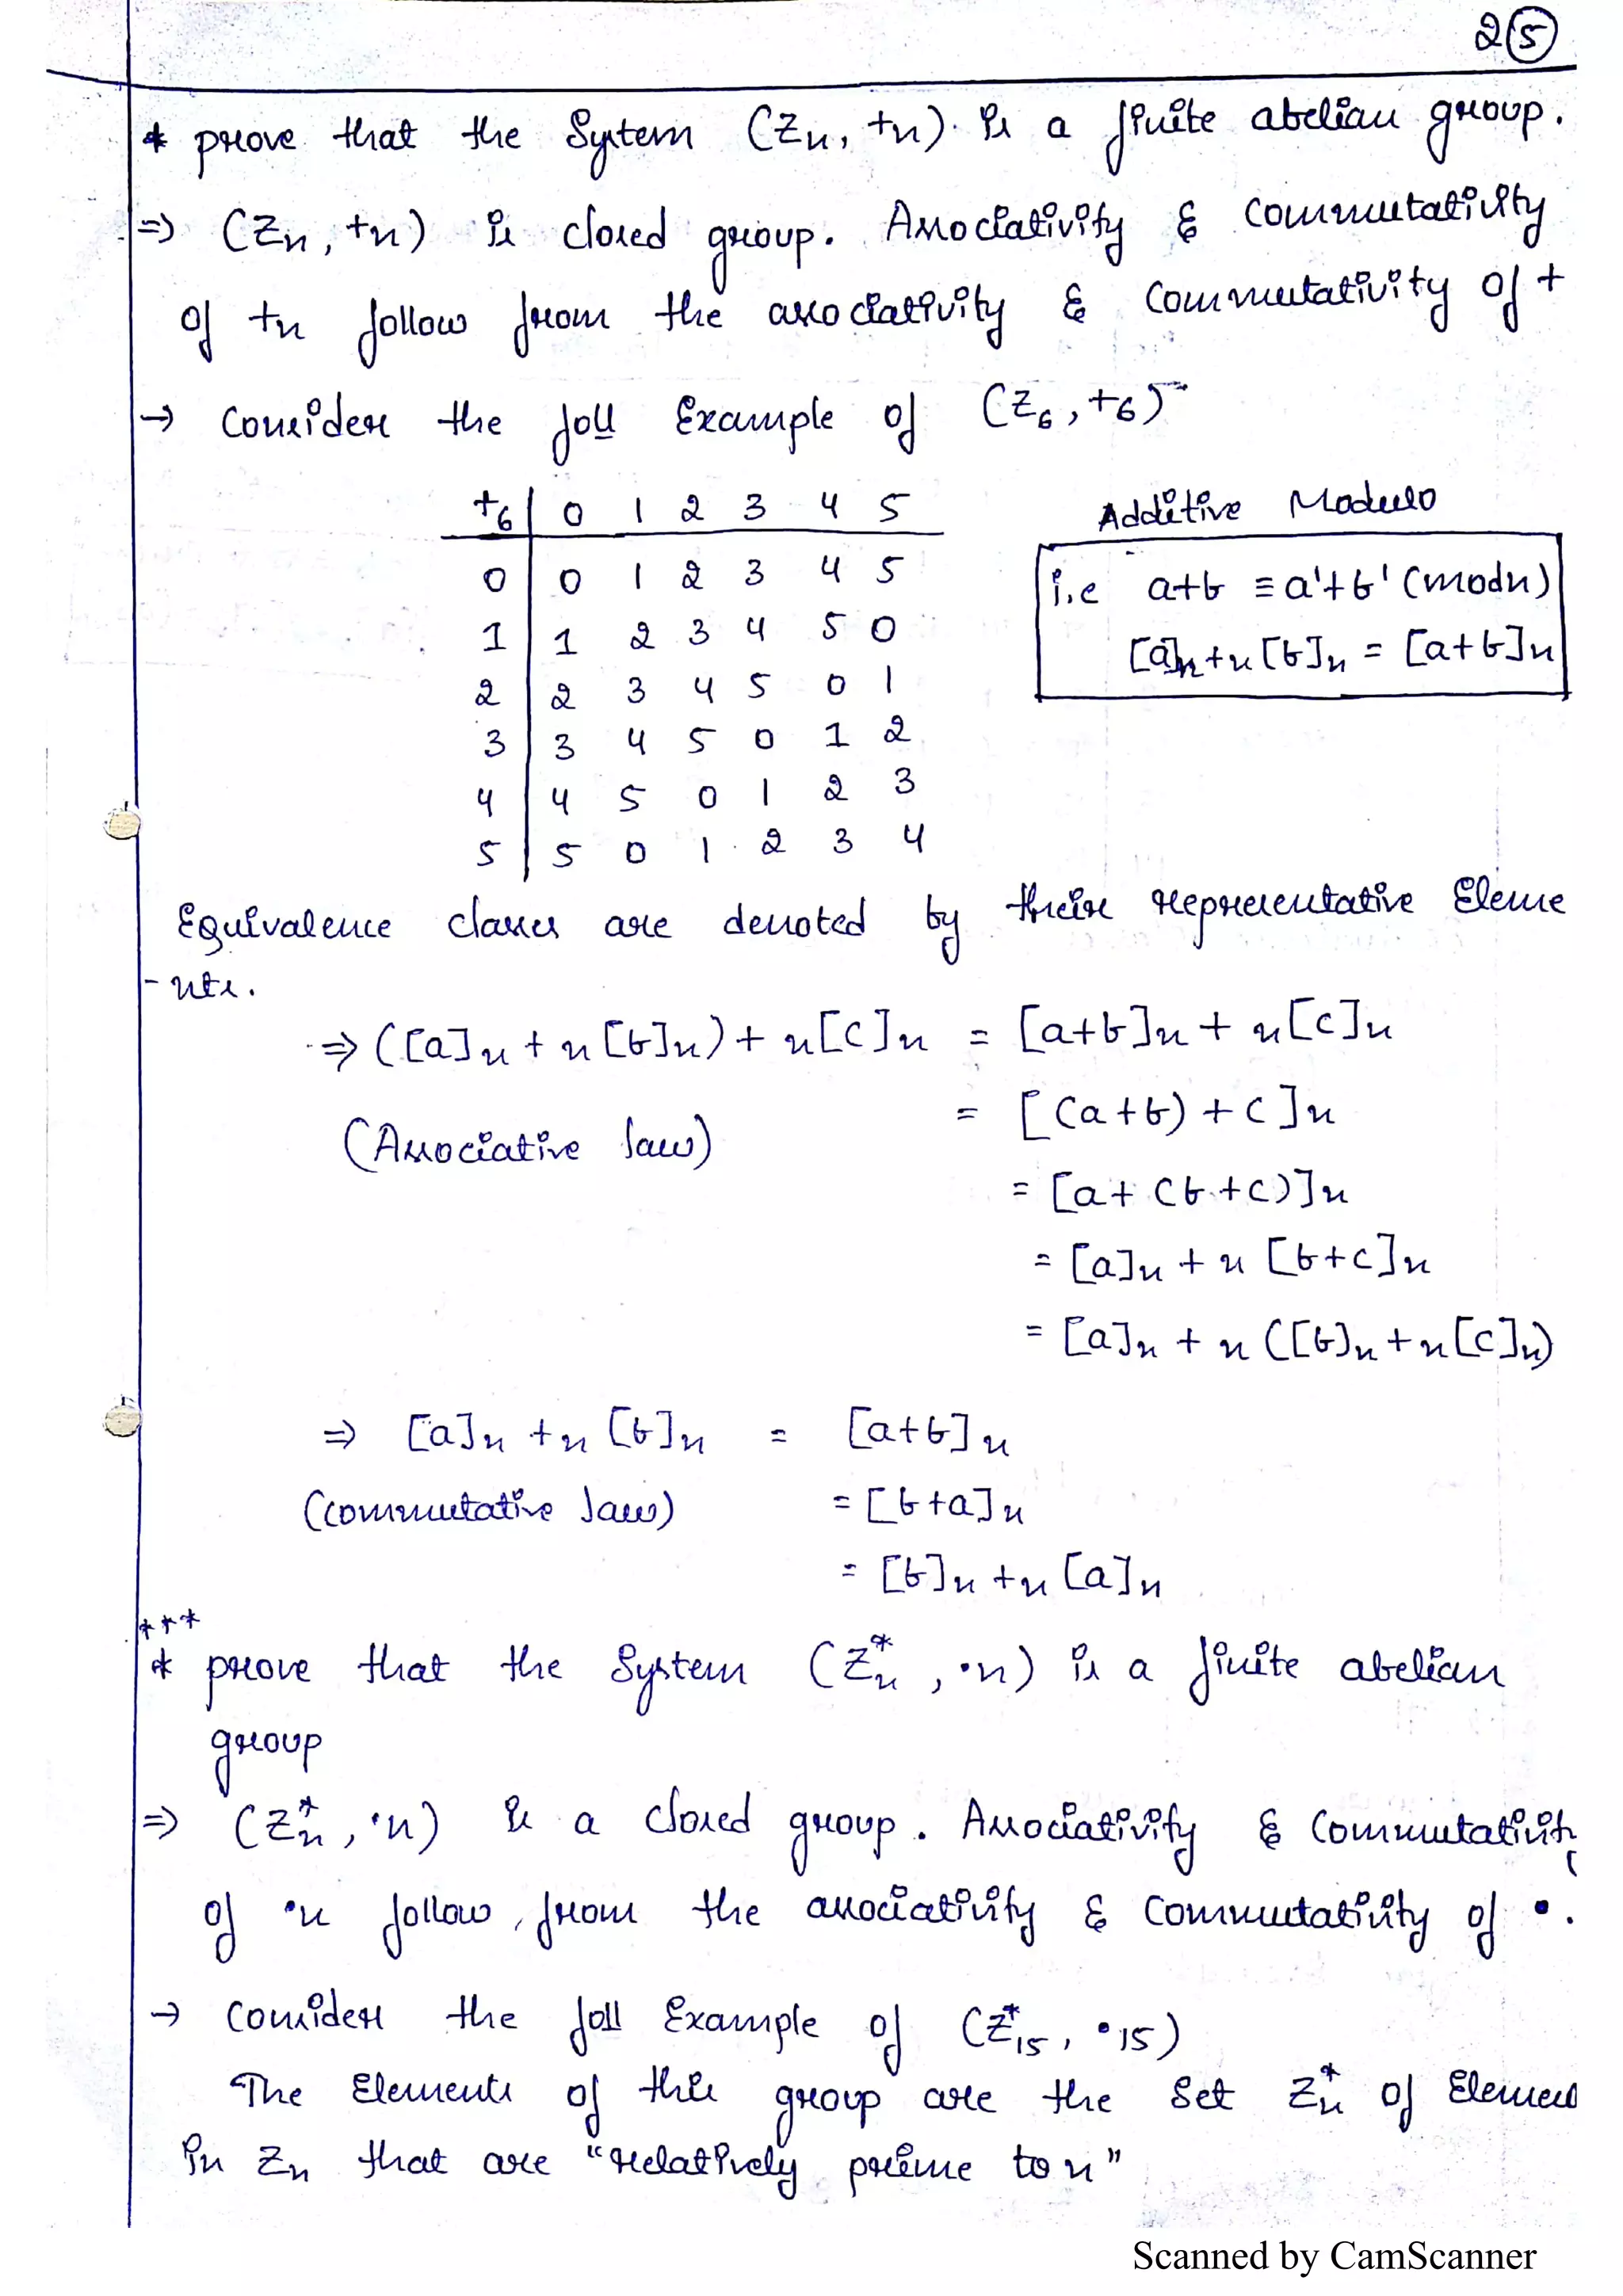 2 5
* prove that the System (Zn, +n) is a finite abelian group.
⇒ (Zn, +n) is closed group. Associativity & Commutativity
of +n follow from the associativity & Commutativity of +
→ Consider the foll Example of (Z6, +6)
+6 | 0 1 2 3 4 5
0 | 0 1 2 3 4 5
1 | 1 2 3 4 5 0
2 | 2 3 4 5 0 1
3 | 3 4 5 0 1 2
4 | 4 5 0 1 2 3
5 | 5 0 1 2 3 4
Additive Modulo
i.e a+b ≡ a'+b' (modn)
[a]n +n [b]n = [a+b]n
Equivalence classes are denoted by their representative Eleme
-nts.
⇒ ([a]n +n [b]n) +n [c]n = [a+b]n +n [c]n
= [(a+b)+c]n
(Associative law)
= [a+(b+c)]n
= [a]n +n [b+c]n
= [a]n +n ([b]n +n [c]n)
⇒ [a]n +n [b]n = [a+b]n
(commutative law) = [b+a]n
= [b]n +n [a]n
***
* prove that the System (Z*n, ·n) is a finite abelian
group
⇒ (Z*n, ·n) is a closed group. Associativity & Commutativity
of ·n follow from the associativity & Commutativity of •.
→ Consider the foll Example of (Z*15, •15)
The Elements of this group are the Set Z*n of Element
in Zn that are "relatively prime to n"
Scanned by CamScanner